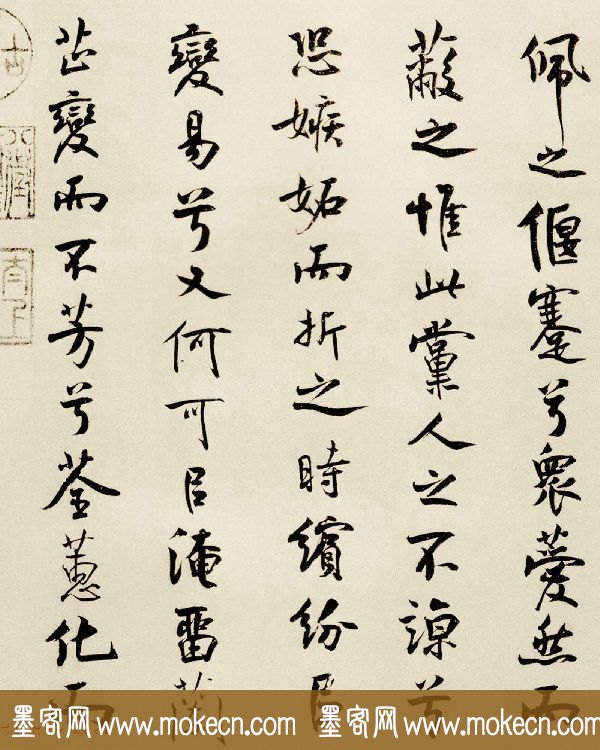 佩之偃蹇兮衆薆然而
蔽之惟此黨人之不諒兮
恐嫉妬而折之時繽紛㠯
變易兮又何可㠯淹留蘭
芷變而不芳兮荃蕙化而
墨客网 www.mokecn.com 墨客网 www.mokecn.com